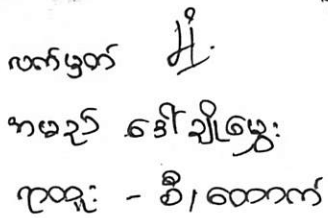 လက်မှတ်
အမည် ဒေါ်ချိုမွှေး
ရာထူး - စီ/ထောက်